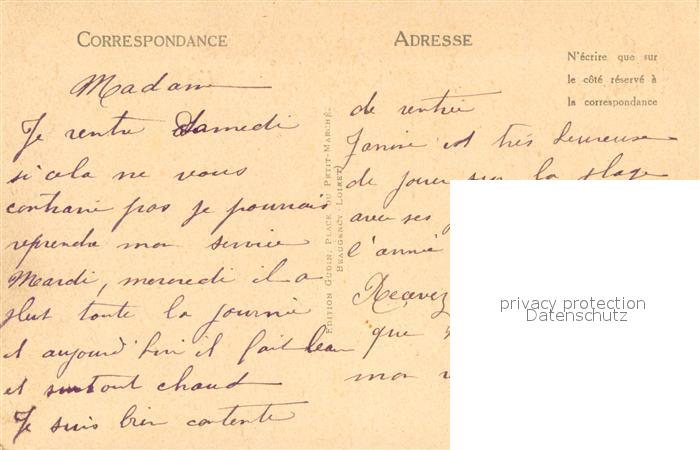 CORRESPONDANCE
Madame
Je rentre Samedi
si cela ne vous
contrarie pas je pourrais
reprendre mon service
Mardi, mercredi il a
plut toute la journée
et aujourd'hui il fait beau
et surtout chaud
Je suis bien contente
EDITION GUDIN, PLACE DU PETIT-MARCHÉ,
BEAUGENCY (LOIRET)
ADRESSE
N'écrire que sur
le côté réservé à
la correspondance
de rentrée
Janine est très heureuse
de jouer sur la plage
avec ses
l'année
Reçevez
que
mon
privacy protection
Datenschutz